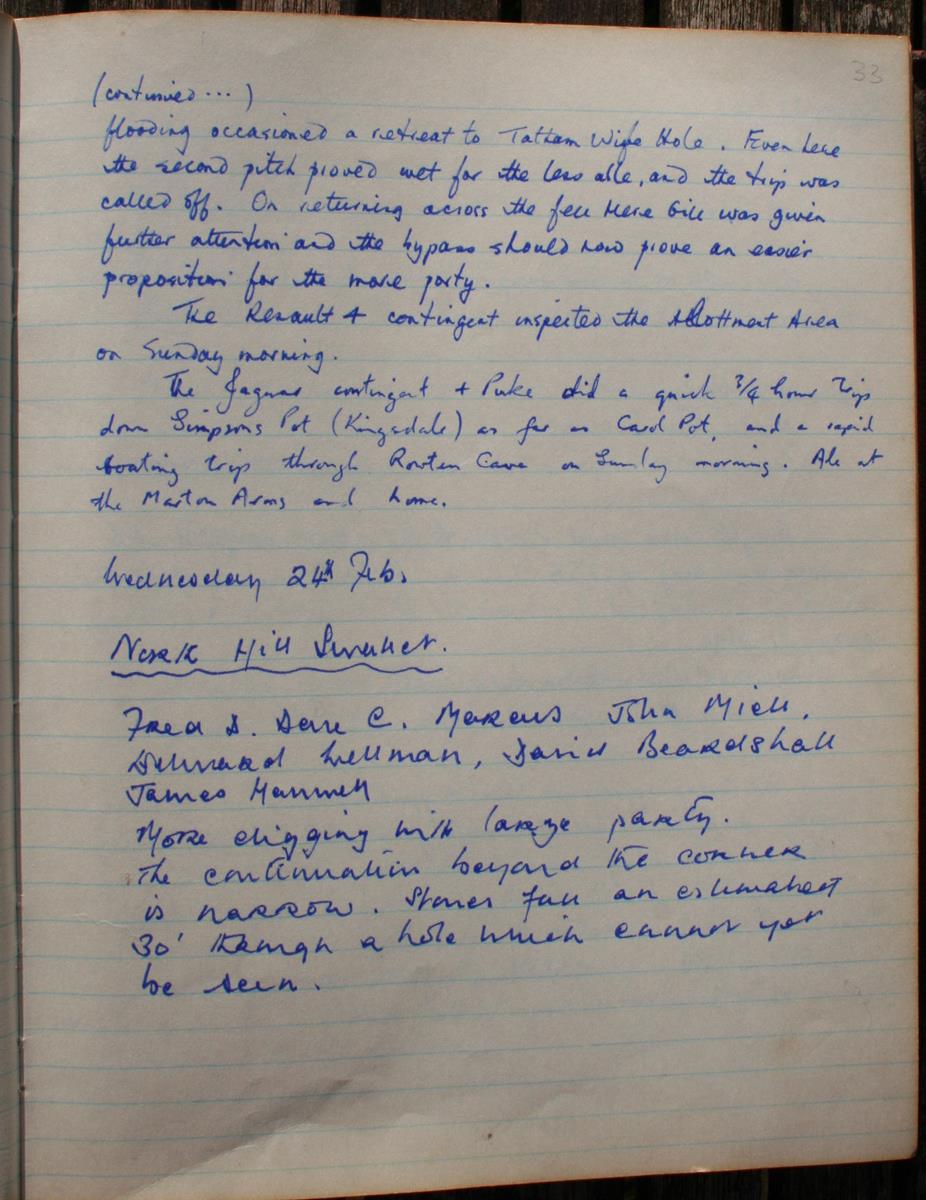 33
(continued ... )
flooding occasioned a retreat to Tatham Wife Hole. Even here
the second pitch proved wet for the less able, and the trip was
called off. On returning across the fell Mere Gill was given
further attention and the bypass should now prove an easier
proposition for the more party.
The Renault 4 contingent inspected the Allottment Area
on Sunday morning.
The Jaguar contingent + Puke did a quick 3/4 hour trip
down Simpsons Pot (Kingsdale) as far as Card Pot, and a rapid
boating trip through Rowten Cave on Sunday morning. Ale at
the Marton Arms and home.
Wednesday 24th Feb.
Nork Hill Swallet.
Fred D. Dave C. Marcus John Miell,
Wellman, David Beardshall
James Hanwell
More digging with large party.
The continuation beyond the corner
is narrow. Stones fall an estimated
30' through a hole which cannot yet
be seen.